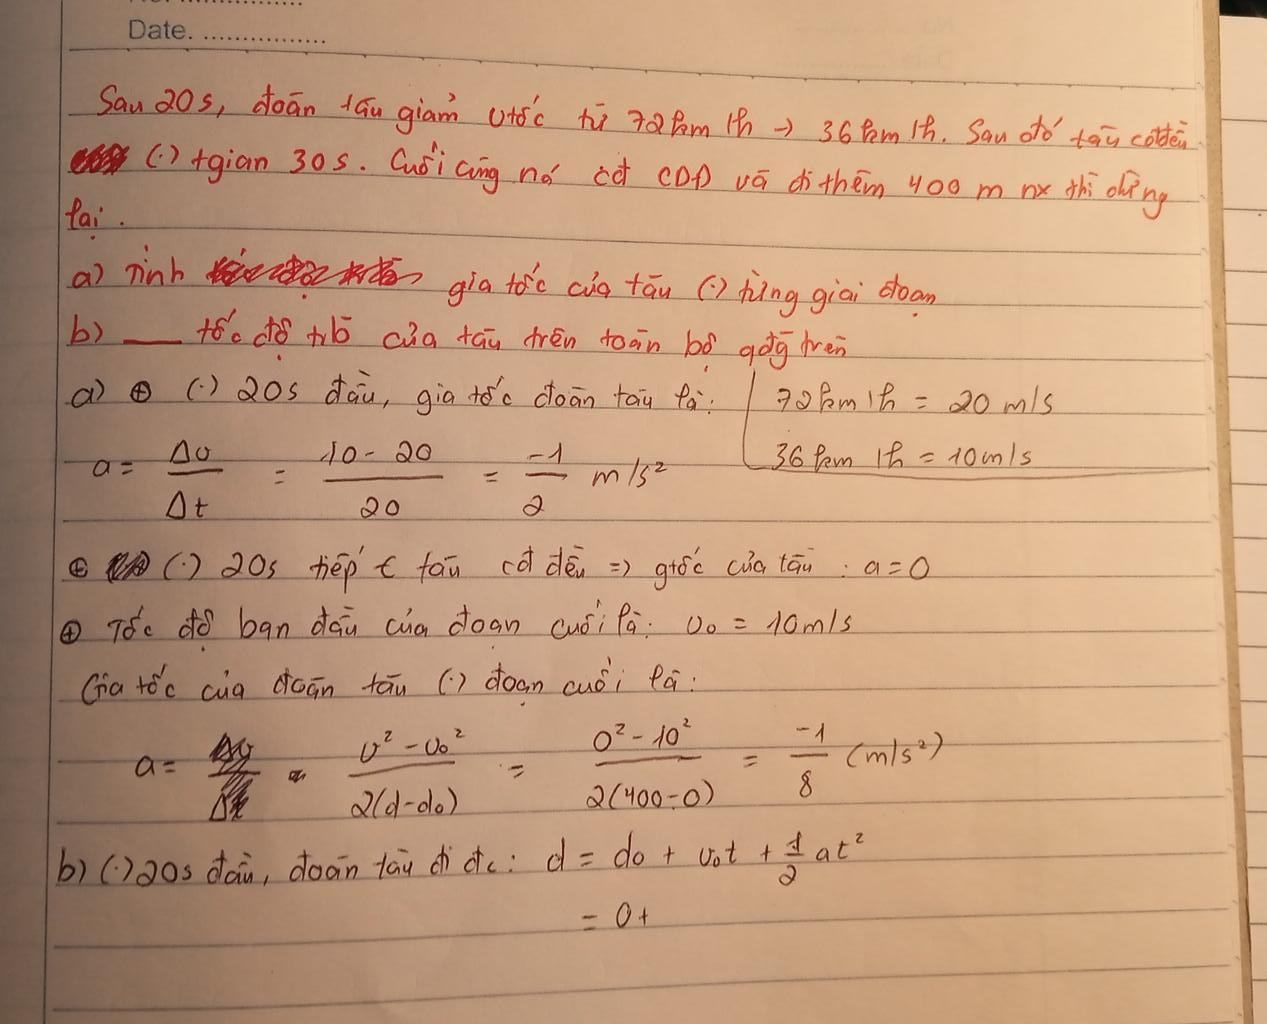 Date. ................
Sau 20s, đoàn tàu giảm vtốc từ 72km/h → 36km/h. Sau đó tàu cđđều
(·) tgian 30s. Cuối cùng nó cđ CDĐ và đi thêm 400 m nx thì dừng
lại.
a) Tính gia tốc của tàu (·) từng giai đoạn
b) __ tốc độ tb của tàu trên toàn bộ qđg trên
a) ⊕ (·) 20s đầu, gia tốc đoàn tàu là:
72km/h = 20 m/s
36km/h = 10m/s
a = Δv/Δt = (10 - 20)/20 = -1/2 m/s²
⊕ (·) 20s tiếp t tàu cđ đều => gtốc của tàu : a = 0
⊕ Tốc độ ban đầu của đoạn cuối là: v₀ = 10m/s
Gia tốc của đoàn tàu (·) đoạn cuối là:
a = (v² - v₀²)/(2(d-d₀)) = (0² - 10²)/(2(400-0)) = -1/8 (m/s²)
b) (·) 20s đầu, đoàn tàu đi đc: d = d₀ + v₀t + 1/2 at²
= 0 +